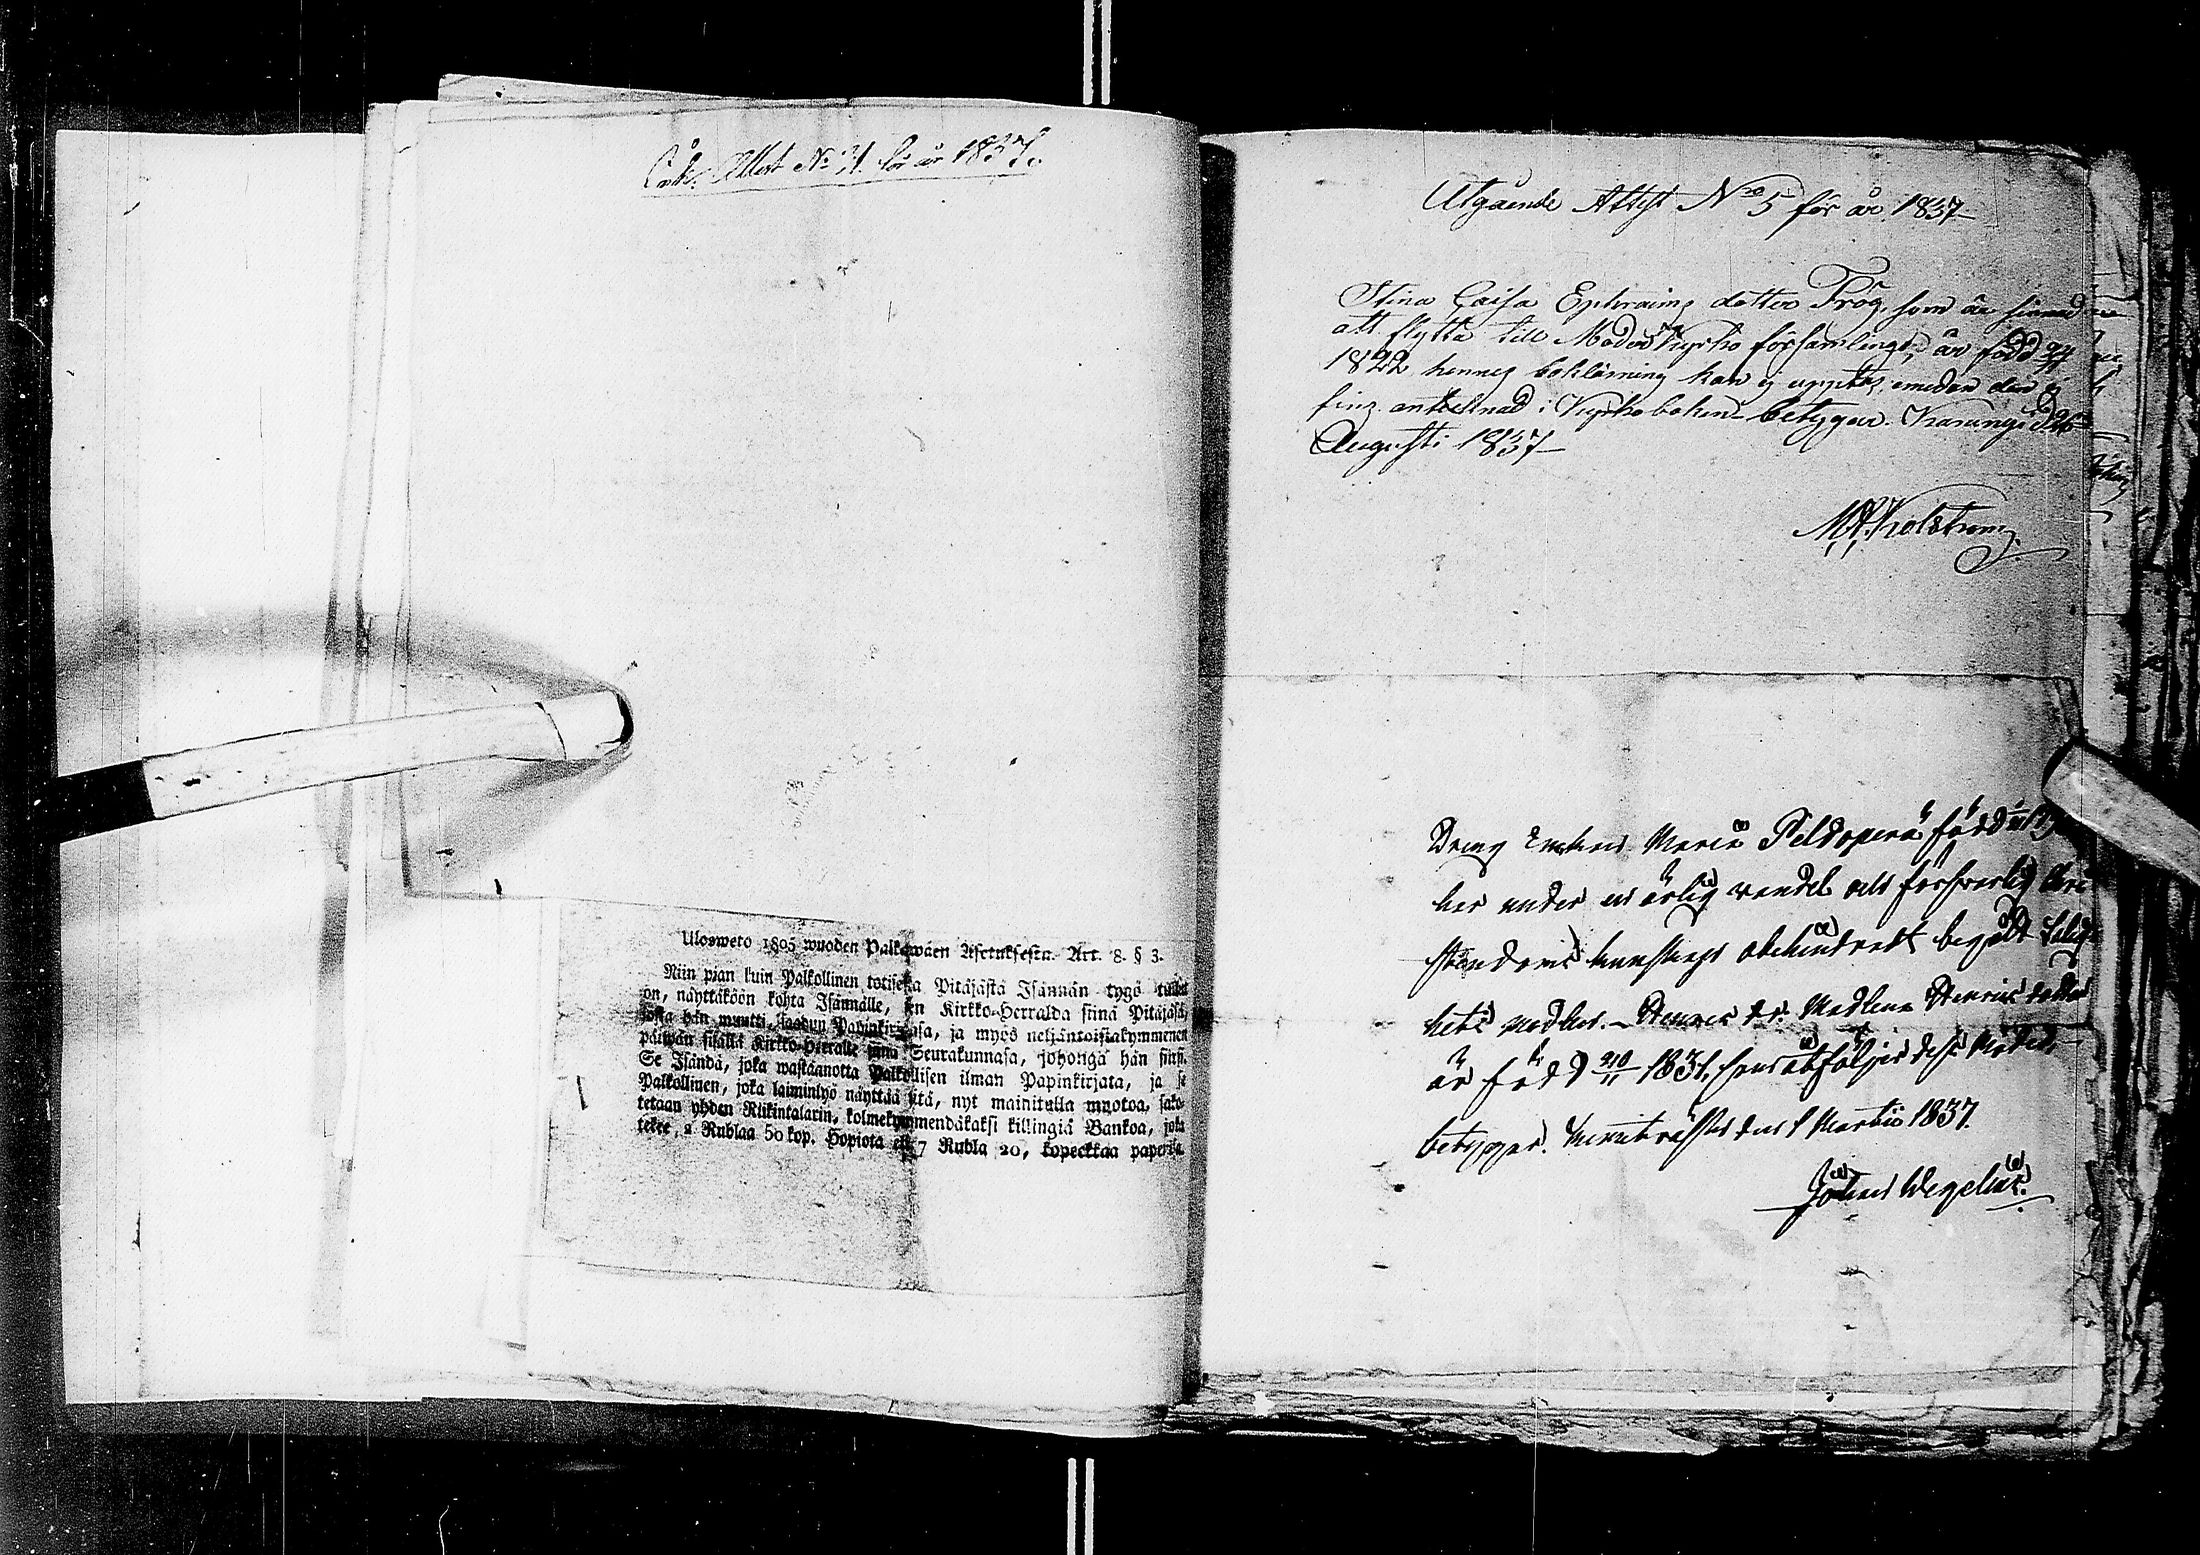 Attest No 21. för år 1837.
Ulosweto 1805 wuoden Palkawäen Asetuksesta. Art. 8. § 3.
Niin pian kuin Palkollinen totisesta Pitäjästä Isännän tygö tullut
on, näyttäköön kohta Isännälle, sen Kirkko-Herralda siinä Pitäjäsä,
josta hän muutti, saadun Papinkirjansa, ja myös neljäntoistakymmenen
päiwän sisällä Kirkko-Herralle siinä Seurakunnasa, johonga hän siirsi.
Se Isändä, joka wastaanotta Palkollisen ilman Papinkirjata, ja se
Palkollinen, joka laiminlyö näyttää sitä, nyt mainitulla muotoa, sako-
tetaan yhden Riikintalarin, kolmekymmendäkaksi killingiä Bankoa, joka
tekee, 2 Rublaa 50 kop. Hopiota eli 7 Rubla 20, kopeckkaa paperila.
Utgående Attest No 5 för år 1837
Stina Caisa Ephraims dotter Frög, som är sinnad
att flytta till Moder Kyrko församlingen, är född
1822 hennes boklärning kan ej upptas, emedan den ej
fins antecknad i Kyrkoboken betygar. Karungi d.
Augusti 1837
Maria född
har under en ärlig wandel och försvarlig Chri
stendoms kunskap obehindradt begått Salig-
hets medlen. Dennes dr. Madlena Henrics dotter
är född 20/11 1831, hon åtföljer dess Moder,
betygar. den 1 Martii 1837.
Johan Wegelius.